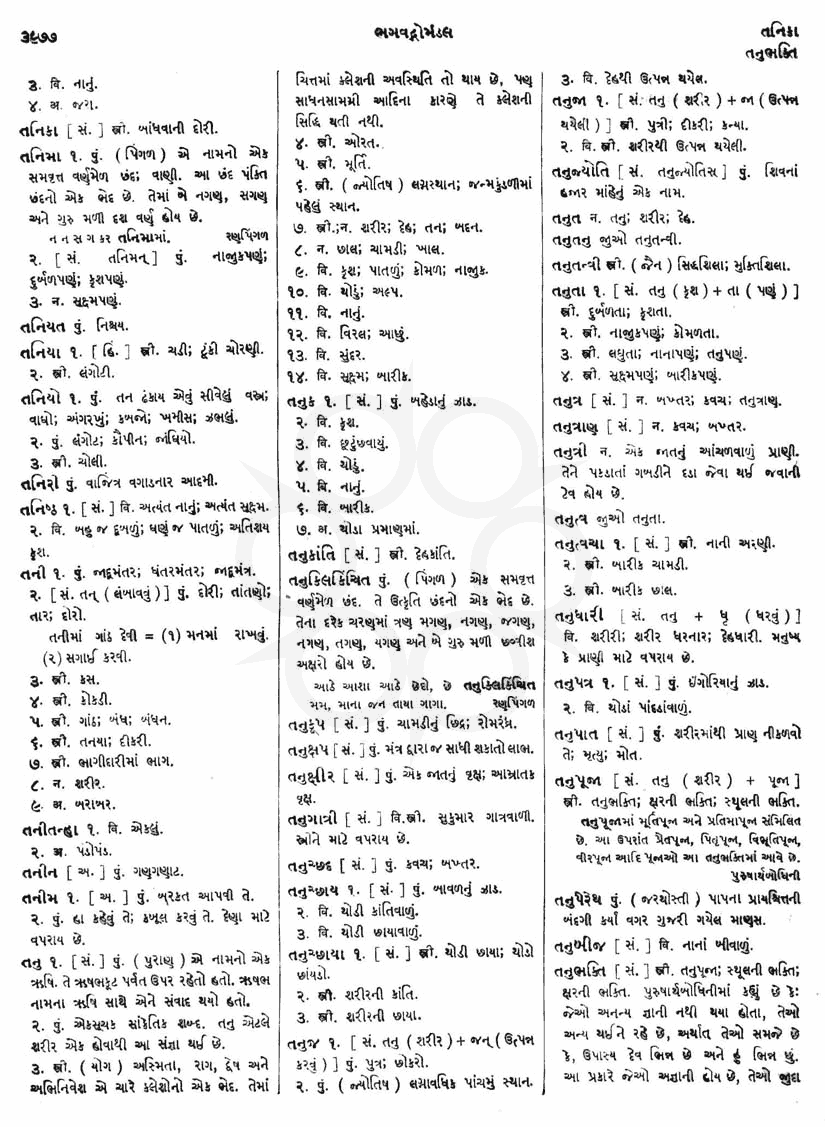 ૩૯૭૭
ભગવદ્ગોમંડલ
તનિકા
તનુભક્તિ
૩. વિ. નાનું.
૪. અ. જરા.
તનિકા [ સં. ] સ્ત્રી. બાંધવાની દોરી.
તનિમા ૧. પું. ( પિંગળ ) એ નામનો એક
સમવૃત્ત વર્ણમેળ છંદ; વાણી. આ છંદ પંક્તિ
છંદનો એક ભેદ છે. તેમાં બે નગણ, સગણ
અને ગુરુ મળી દશ વર્ણ હોય છે.
ન ન સ ગ કર તનિમામાં. રણપિંગળ
૨. [ સં. તનિમન્ ] પું. નાજુકપણું;
દુર્બળપણું; કૃશપણું.
૩. ન. સૂક્ષ્મપણું.
તનિયત પું. નિશ્ચય.
તનિયા ૧. [ હિં. ] સ્ત્રી. ચડી; ટૂંકી ચોરણી.
૨. સ્ત્રી. લંગોટી.
તનિયો ૧. પું. તન ઢંકાય એવું સીવેલું વસ્ત્ર;
વાઘો; અંગરખું; કબજો; ખમીસ; ઝભલું.
૨. પું. લંગોટ; કૌપીન; જાંઘિયો.
૩. સ્ત્રી. ચોલી.
તનિરો પું. વાજિંત્ર વગાડનાર આદમી.
તનિષ્ઠ ૧. [ સં. ] વિ. અત્યંત નાનું; અત્યંત સૂક્ષ્મ.
૨. વિ. બહુ જ દૂબળું; ઘણું જ પાતળું; અતિશય
કૃશ.
તની ૧. પું. જાદૂમંતર; ધંતરમંતર; જાદૂમંત્ર.
૨. [ સં. તન્ ( લંબાવવું ) ] પું. દોરી; તાંતણો;
તાર; દોરો.
તનીમાં ગાંઠ દેવી = (૧) મનમાં રાખવું.
(૨) સગાઈ કરવી.
૩. સ્ત્રી. કસ.
૪. સ્ત્રી. કોકડી.
૫. સ્ત્રી. ગાંઠ; બંધ; બંધન.
૬. સ્ત્રી. તનયા; દીકરી.
૭. સ્ત્રી. ભાગીદારીમાં ભાગ.
૮. ન. શરીર.
૯. અ. બરાબર.
તનીતન્હા ૧. વિ. એકલું.
૨. અ. પંડોપંડ.
તનીન [ અ. ] પું. ગણગણાટ.
તનીમ ૧. [ અ. ] પું. બરકત આપવી તે.
૨. પું. હા કહેવું તે; કબૂલ કરવું તે. દેણા માટે
વપરાય છે.
તનુ ૧. [ સં. ] પું. ( પુરાણ ) એ નામનો એક
ઋષિ. તે ઋષભકૂટ પર્વત ઉપર રહેતો હતો. ઋષભ
નામના ઋષિ સાથે એને સંવાદ થયો હતો.
૨. પું. એકસૂચક સાંકેતિક શબ્દ. તનુ એટલે
શરીર એક હોવાથી આ સંજ્ઞા થઈ છે.
૩. સ્ત્રી. ( યોગ ) અસ્મિતા, રાગ, દ્વેષ અને
અભિનિવેશ એ ચારે કલેશોનો એક ભેદ. તેમાં
ચિત્તમાં કલેશની અવસ્થિતિ તો થાય છે, પણ
સાધનસામગ્રી આદિના કારણે તે કલેશની
સિદ્ધિ થતી નથી.
૪. સ્ત્રી. ઓરત.
૫. સ્ત્રી. મૂર્તિ.
૬. સ્ત્રી. ( જ્યોતિષ ) લગ્નસ્થાન; જન્મકુંડળીમાં
પહેલું સ્થાન.
૭. સ્ત્રી.;ન. શરીર; દેહ; તન; બદન.
૮. ન. છાલ; ચામડી; ખાલ.
૯. વિ. કૃશ; પાતળું; કોમળ; નાજુક.
૧૦. વિ. થોડું; અલ્પ.
૧૧. વિ. નાનું.
૧૨. વિ. વિરલ; આછું.
૧૩. વિ. સુંદર.
૧૪. વિ. સૂક્ષ્મ; બારીક.
તનુક ૧. [ સં. ] પું. બહેડાનું ઝાડ.
૨. વિ. કૃશ.
૩. વિ. છૂટુંછવાયું.
૪. વિ. થોડું.
૫. વિ. નાનું.
૬. વિ. બારીક.
૭. અ. થોડા પ્રમાણમાં.
તનુકાંતિ [ સં. ] સ્ત્રી. દેહકાંતિ.
તનુકિલકિંચિત પું. ( પિંગળ ) એક સમવૃત્ત
વર્ણમેળ છંદ. તે ઉત્કૃતિ છંદનો એક ભેદ છે.
તેના દરેક ચરણમાં ત્રણ મગણ, નગણ, જગણ,
નગણ, તગણ, યગણ અને બે ગુરુ મળી છવીશ
અક્ષરો હોય છે.
આઠે આશા આઠે છેદો, છે તનુકિલકિંચિત
મમ, માના જન તાયા ગાગા. રણપિંગળ
તનુકૂપ [ સં. ] પું. ચામડીનું છિદ્ર; રોમરંધ્ર.
તનુક્ષપ [ સં. ] પું. મંત્ર દ્વારા જ સાધી શકાતો લાભ.
તનુક્ષીર [ સં. ] પું. એક જાતનું વૃક્ષ; આમ્રાતક
વૃક્ષ.
તનુગાત્રી [ સં. ] વિ.સ્ત્રી. સુકુમાર ગાત્રવાળી.
સ્ત્રીને માટે વપરાય છે.
તનુચ્છદ [ સં. ] પું. કવચ; બખ્તર.
તનુચ્છાય ૧. [ સં. ] પું. બાવળનું ઝાડ.
૨. વિ. થોડી કાંતિવાળું.
૩. વિ. થોડી છાયાવાળું.
તનુચ્છાયા ૧. [ સં. ] સ્ત્રી. થોડી છાયા; થોડો
છાંયડો.
૨. સ્ત્રી. શરીરની કાંતિ.
૩. સ્ત્રી. શરીરની છાયા.
તનુજ ૧. [ સં. તનુ ( શરીર ) + જન્ ( ઉત્પન્ન
કરવું ) ] પું. પુત્ર; છોકરો.
૨. પું. ( જ્યોતિષ ) લગ્નાવધિક પાંચમું સ્થાન.
૩. વિ. દેહથી ઉત્પન્ન થયેલ.
તનુજા ૧. [ સં. તનુ ( શરીર ) + જા ( ઉત્પન્ન
થયેલી ) ] સ્ત્રી. પુત્રી; દીકરી; કન્યા.
૨. વિ. સ્ત્રી. શરીરથી ઉત્પન્ન થયેલી.
તનુજ્યોતિ [ સં. તનુજ્યોતિસ્ ] પું. શિવનાં
હજાર માંહેનું એક નામ.
તનુત ન. તનુ; શરીર; દેહ.
તનુતનુ જુઓ તનુતન્વી.
તનુતન્વી સ્ત્રી. ( જૈન ) સિદ્ધશિલા; મુક્તિશિલા.
તનુતા ૧. [ સં. તનુ ( કૃશ ) + તા ( પણું ) ]
સ્ત્રી. દુર્બળતા; કૃશતા.
૨. સ્ત્રી. નાજુકપણું; કોમળતા.
૩. સ્ત્રી. લઘુતા; નાનાપણું; તનુપણું.
૪. સ્ત્રી. સૂક્ષ્મપણું; બારીકપણું.
તનુત્ર [ સં. ] ન. બખ્તર; કવચ; તનુત્રાણ.
તનુત્રાણ [ સં. ] ન. કવચ; બખ્તર.
તનુત્રી ન. એક જાતનું આંચળવાળું પ્રાણી.
તેને પકડાતાં ગબડીને દડા જેવા થઈ જવાની
ટેવ હોય છે.
તનુત્વ જુઓ તનુતા.
તનુત્વચા ૧. [ સં. ] સ્ત્રી. નાની અરણી.
૨. સ્ત્રી. બારીક ચામડી.
૩. સ્ત્રી. બારીક છાલ.
તનુધારી [ સં. તનુ + ધૃ ( ધરવું ) ]
વિ. શરીરી; શરીર ધરનાર; દેહધારી. મનુષ્ય
કે પ્રાણી માટે વપરાય છે.
તનુપત્ર ૧. [ સં. ] પું. ઇંગોરિયાનું ઝાડ.
૨. વિ. થોડાં પાંદડાંવાળું.
તનુપાત [ સં. ] પું. શરીરમાંથી પ્રાણ નીકળવો
તે; મૃત્યુ; મોત.
તનુપૂજા [ સં. તનુ ( શરીર ) + પૂજા ]
સ્ત્રી. તનુભક્તિ; ક્ષરની ભક્તિ; સ્થૂલની ભક્તિ.
તનુપૂજામાં મૂર્તિપૂજા અને પ્રતિમાપૂજા સંમિલિત
છે. આ ઉપરાંત પ્રેતપૂજા, પિતૃપૂજા, વિભૂતિપૂજા,
વીરપૂજા આદિ પૂજાઓ આ તનુભક્તિમાં આવે છે.
પુરુષાર્થબોધિની
તનુપેરેથ પું. ( જરથોસ્તી ) પાપના પ્રાયશ્ચિત્તની
બંદગી કર્યા વગર ગુજરી ગયેલ માણસ.
તનુબીજ [ સં. ] વિ. નાનાં બીવાળું.
તનુભક્તિ [ સં. ] સ્ત્રી. તનુપૂજા; સ્થૂલની ભક્તિ;
ક્ષરની ભક્તિ. પુરુષાર્થબોધિનીમાં કહ્યું છે કે:
જેઓ અનન્ય જ્ઞાની નથી થયા હોતા, તેઓ
અન્ય થઈને રહે છે, અર્થાત તેઓ સમજે છે
કે, ઉપાસ્ય દેવ ભિન્ન છે અને હું ભિન્ન છું.
આ પ્રકારે જેઓ અજ્ઞાની હોય છે, તેઓ જુદા